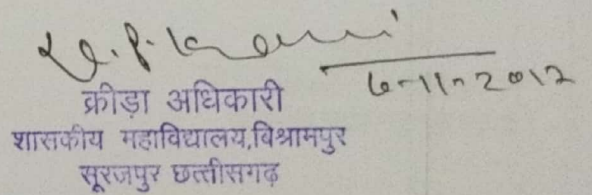 6-11-2012
क्रीड़ा अधिकारी
शासकीय महाविद्यालय,विश्रामपुर
सूरजपुर छत्तीसगढ़